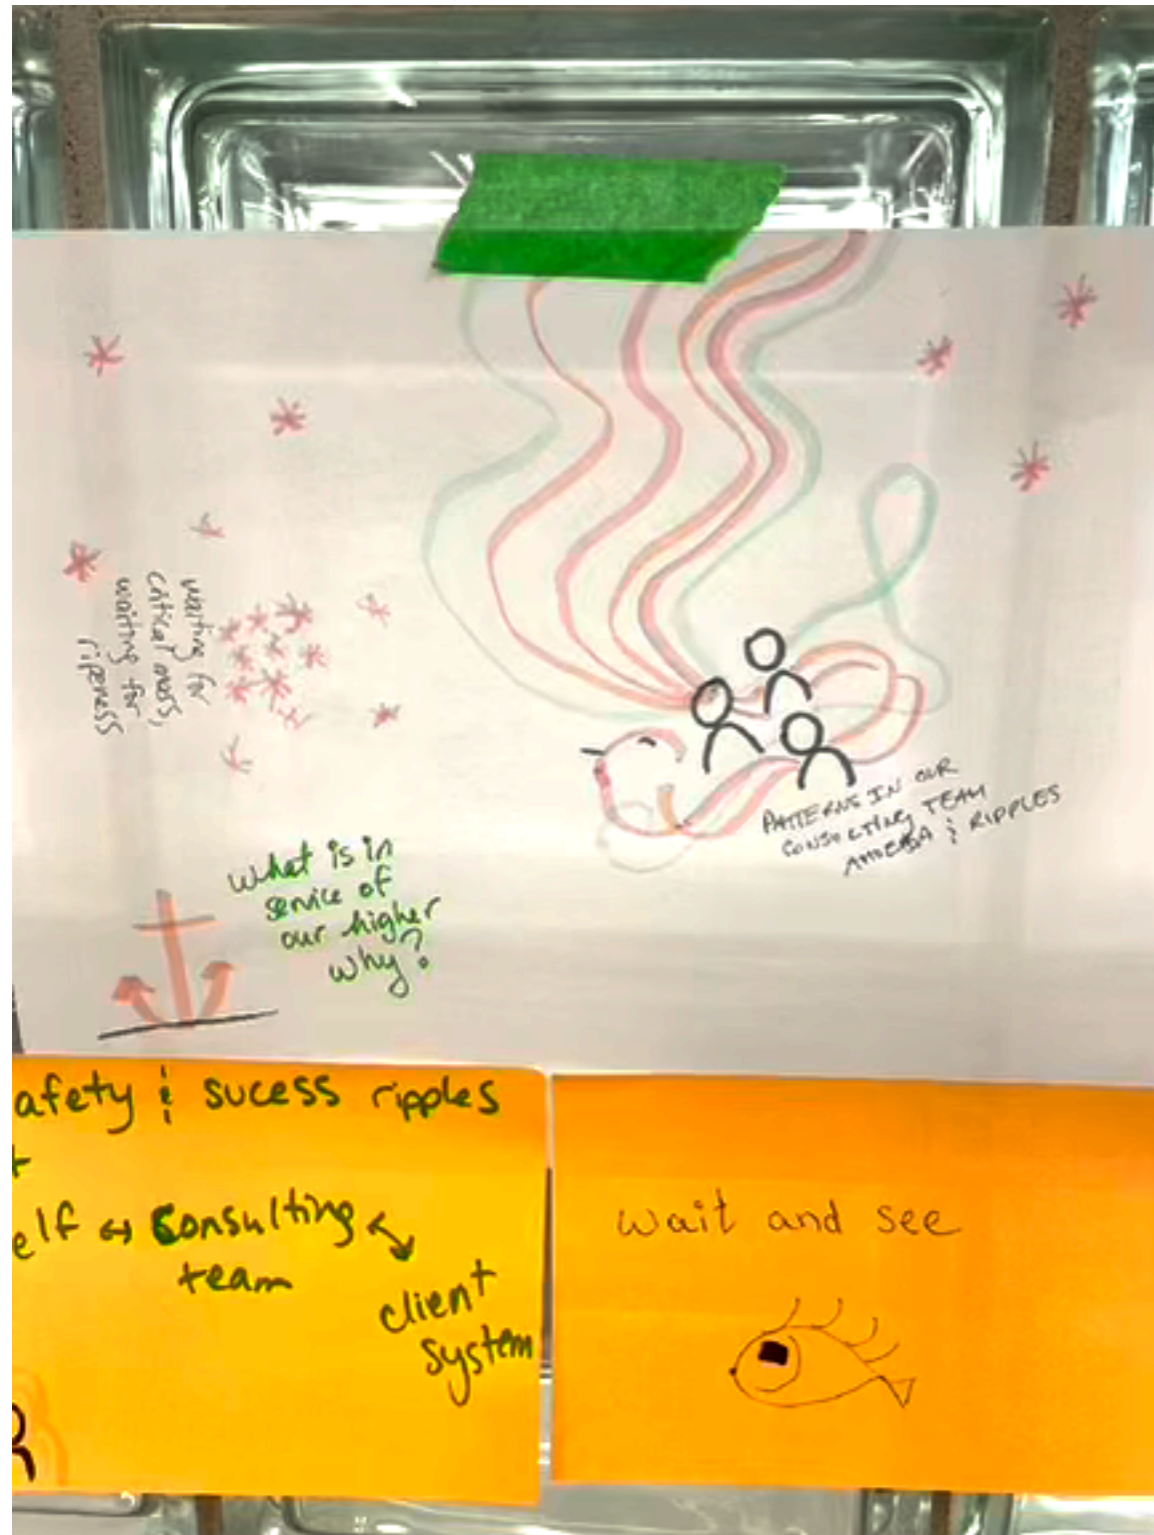 waiting for
critical mass,
waiting for
ripeness
PATTERNS IN OUR
CONSULTING TEAM
AMOEBA & RIPPLES
What is in
service of
our higher
why?
afety & sucess ripples
elf ↔ Consulting
team
client
system
wait and see